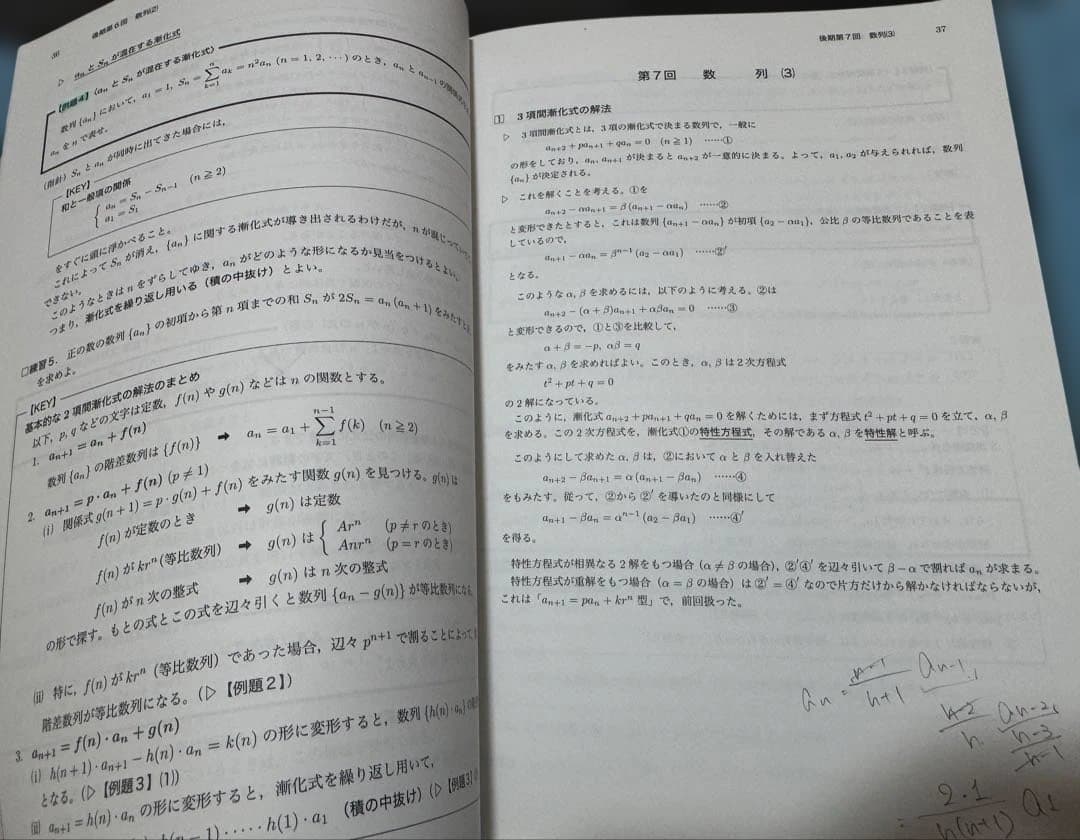 36 後期第6回 数列(2)
▷ aₙ と Sₙ が混在する漸化式
【例題4】(aₙ と Sₙ が混在する漸化式)
数列 {aₙ} において, a₁ = 1, Sₙ = ∑_{k=1}^{n} aₖ = n²aₙ (n = 1, 2, ⋯) のとき, aₙ と aₙ₋₁ の関係式
aₙ を n で表せ.
(指針) Sₙ と aₙ が同時に出てきた場合には,
【KEY】
和と一般項の関係
{ aₙ = Sₙ − Sₙ₋₁ (n ≧ 2)
a₁ = S₁
をすぐに頭に浮かべること.
これによって Sₙ が消え, {aₙ} に関する漸化式が導き出されるわけだが, n が混じっていて
できない.
このようなときは n をずらしてゆき, aₙ がどのような形になるか見当をつけるとよい.
つまり, 漸化式を繰り返し用いる (積の中抜け) とよい.
□練習5. 正の数の数列 {aₙ} の初項から第 n 項までの和 Sₙ が 2Sₙ = aₙ (aₙ + 1) をみたすとき
を求めよ.
【KEY】
基本的な2項間漸化式の解法のまとめ
以下, p, q などの文字は定数, f(n) や g(n) などは n の関数とする.
1. aₙ₊₁ = aₙ + f(n)
数列 {aₙ} の階差数列は {f(n)} ➡ aₙ = a₁ + ∑_{k=1}^{n−1} f(k) (n ≧ 2)
2. aₙ₊₁ = p · aₙ + f(n) (p ≠ 1)
(i) 関係式 g(n + 1) = p · g(n) + f(n) をみたす関数 g(n) を見つける. g(n) は
f(n) が定数のとき ➡ g(n) は定数
f(n) が krⁿ (等比数列) ➡ g(n) は { Arⁿ (p ≠ r のとき)
Anrⁿ (p = r のとき)
f(n) が n 次の整式 ➡ g(n) は n 次の整式
の形で探す. もとの式とこの式を辺々引くと数列 {aₙ − g(n)} が等比数列になる.
(ii) 特に, f(n) が krⁿ (等比数列) であった場合, 辺々 pⁿ⁺¹ で割ることによって
階差数列が等比数列になる. (▷【例題2】)
3. aₙ₊₁ = f(n) · aₙ + g(n)
(i) h(n + 1) · aₙ₊₁ − h(n) · aₙ = k(n) の形に変形すると, 数列 {h(n) · aₙ}
となる. (▷【例題3】(1))
(ii) aₙ₊₁ = h(n) · aₙ の形に変形すると, 漸化式を繰り返し用いて,
h(n − 1) · ⋯⋯ · h(1) · a₁ (積の中抜け) (▷【例題3】
後期第7回 数列(3) 37
第7回 数 列 (3)
1 3項間漸化式の解法
▷ 3項間漸化式とは, 3項の漸化式で決まる数列で, 一般に
aₙ₊₂ + paₙ₊₁ + qaₙ = 0 (n ≧ 1) ⋯⋯①
の形をしており, aₙ, aₙ₊₁ が決まると aₙ₊₂ が一意的に決まる. よって, a₁, a₂ が与えられれば, 数列
{aₙ} が決定される.
▷ これを解くことを考える. ①を
aₙ₊₂ − αaₙ₊₁ = β(aₙ₊₁ − αaₙ) ⋯⋯②
と変形できたとすると, これは数列 {aₙ₊₁ − αaₙ} が初項 {a₂ − αa₁}, 公比 β の等比数列であることを表
しているので,
aₙ₊₁ − αaₙ = βⁿ⁻¹ (a₂ − αa₁) ⋯⋯②′
となる.
このような α, β を求めるには, 以下のように考える. ②は
aₙ₊₂ − (α + β)aₙ₊₁ + αβaₙ = 0 ⋯⋯③
と変形できるので, ①と③を比較して,
α + β = −p, αβ = q
をみたす α, β を求めればよい. このとき, α, β は2次方程式
t² + pt + q = 0
の2解になっている.
このように, 漸化式 aₙ₊₂ + paₙ₊₁ + qaₙ = 0 を解くためには, まず方程式 t² + pt + q = 0 を立て, α, β
を求める. この2次方程式を, 漸化式①の特性方程式, その解である α, β を特性解と呼ぶ.
このようにして求めた α, β は, ②において α と β を入れ替えた
aₙ₊₂ − βaₙ₊₁ = α(aₙ₊₁ − βaₙ) ⋯⋯④
をもみたす. 従って, ②から②′を導いたのと同様にして
aₙ₊₁ − βaₙ = αⁿ⁻¹ (a₂ − βa₁) ⋯⋯④′
を得る.
特性方程式が相異なる2解をもつ場合 (α ≠ β の場合), ②′④′を辺々引いて β − α で割れば aₙ が求まる.
特性方程式が重解をもつ場合 (α = β の場合) は ②′ = ④′ なので片方だけから解かなければならないが,
これは「aₙ₊₁ = paₙ + krⁿ 型」で, 前回扱った.
aₙ = (n−1)/(n+1) aₙ₋₁
(n−2)/n aₙ₋₂
(n−3)/(n−1)
= 2·1/n(n+1) a₁